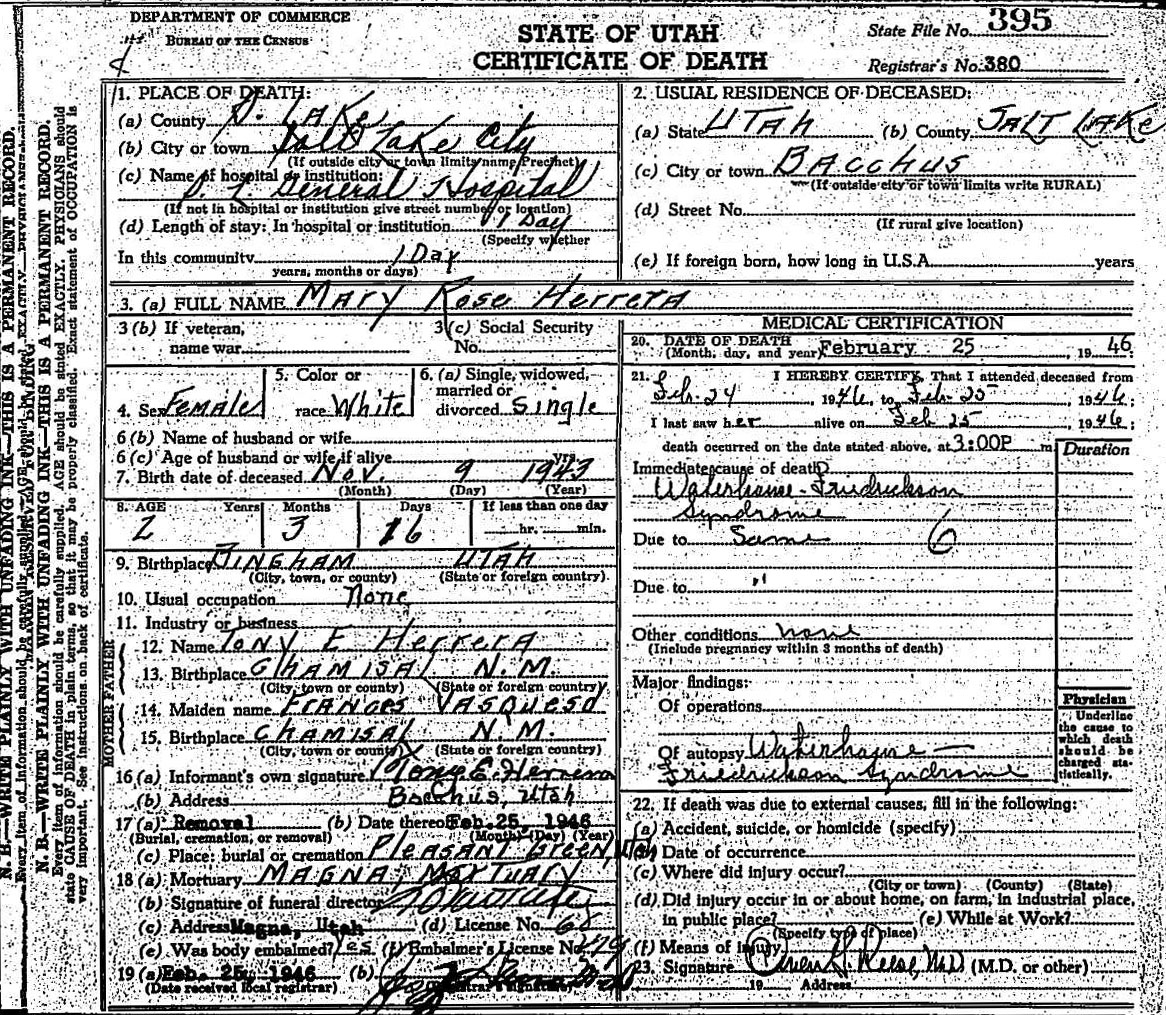 DEPARTMENT OF COMMERCE
BUREAU OF THE CENSUS
STATE OF UTAH
CERTIFICATE OF DEATH
State File No. 395
Registrar's No. 380
N. B.—WRITE PLAINLY WITH UNFADING INK—THIS IS A PERMANENT RECORD.
Every item of information should be carefully supplied. AGE should be stated EXACTLY. PHYSICIANS should
state CAUSE OF DEATH in plain terms, so that it may be properly classified. Exact statement of OCCUPATION is
very important. See instructions on back of certificate.
1. PLACE OF DEATH:
(a) County S. LAKE
(b) City or town Salt Lake City
(If outside city or town limits name Precinct)
(c) Name of hospital or institution:
S. L General Hospital
(If not in hospital or institution give street number or location)
(d) Length of stay: In hospital or institution 1 Day
(Specify whether
In this community 1 Day
years, months or days)
2. USUAL RESIDENCE OF DECEASED:
(a) State UTAH (b) County SALT LAKE
(c) City or town BACCHUS
(If outside city or town limits write RURAL)
(d) Street No.
(If rural give location)
(e) If foreign born, how long in U.S.A. years
3. (a) FULL NAME MARY ROSE HERRERA
3 (b) If veteran,
name war
3 (c) Social Security
No.
4. Sex Female
5. Color or
race White
6. (a) Single, widowed,
married or
divorced Single
6 (b) Name of husband or wife
6 (c) Age of husband or wife, if alive yrs.
7. Birth date of deceased Nov. 9 1943
(Month) (Day) (Year)
8. AGE Years Months Days If less than one day
2 3 16 hr. min.
9. Birthplace BINGHAM UTAH
(City, town, or county) (State or foreign country)
10. Usual occupation None
11. Industry or business
FATHER
12. Name TONY E HERRERA
13. Birthplace CHAMISAL N. M.
(City, town or county) (State or foreign country)
MOTHER
14. Maiden name FRANCES VASQUESO
15. Birthplace CHAMISAL N. M.
(City, town or county) (State or foreign country)
16 (a) Informant's own signature Tony E. Herrera
(b) Address Bacchus, Utah
17 (a) Removal (b) Date thereof Feb. 25, 1946
(Burial, cremation, or removal) (Month) (Day) (Year)
(c) Place: burial or cremation PLEASANT GREEN,
18 (a) Mortuary MAGNA, MORTUARY
(b) Signature of funeral director
(c) Address Magna, Utah (d) License No. 68
(e) Was body embalmed? Yes (f) Embalmer's License No. 479
19 (a) Feb. 25, 1946 (b)
(Date received local registrar) (Registrar's signature)
MEDICAL CERTIFICATION
20. DATE OF DEATH
(Month, day, and year) February 25, 1946
21. I HEREBY CERTIFY, That I attended deceased from
Feb. 24, 1946, to Feb. 25 1946;
I last saw her alive on Feb 25, 1946;
death occurred on the date stated above, at 3:00P m.
Duration
Immediate cause of death
Waterhouse-Fridrickson
Syndrome
Due to Same 6
Due to "
Other conditions none
(Include pregnancy within 3 months of death)
Major findings:
Of operations
Of autopsy Waterhouse—
Friedrickson Syndrome
Physician
Underline
the cause to
which death
should be
charged sta-
tistically.
22. If death was due to external causes, fill in the following:
(a) Accident, suicide, or homicide (specify)
(b) Date of occurrence
(c) Where did injury occur?
(City or town) (County) (State)
(d) Did injury occur in or about home, on farm, in industrial place,
in public place? (e) While at Work?
(Specify type of place)
(f) Means of injury
23. Signature Owen H. Reese, M.D (M.D. or other)
19 Address